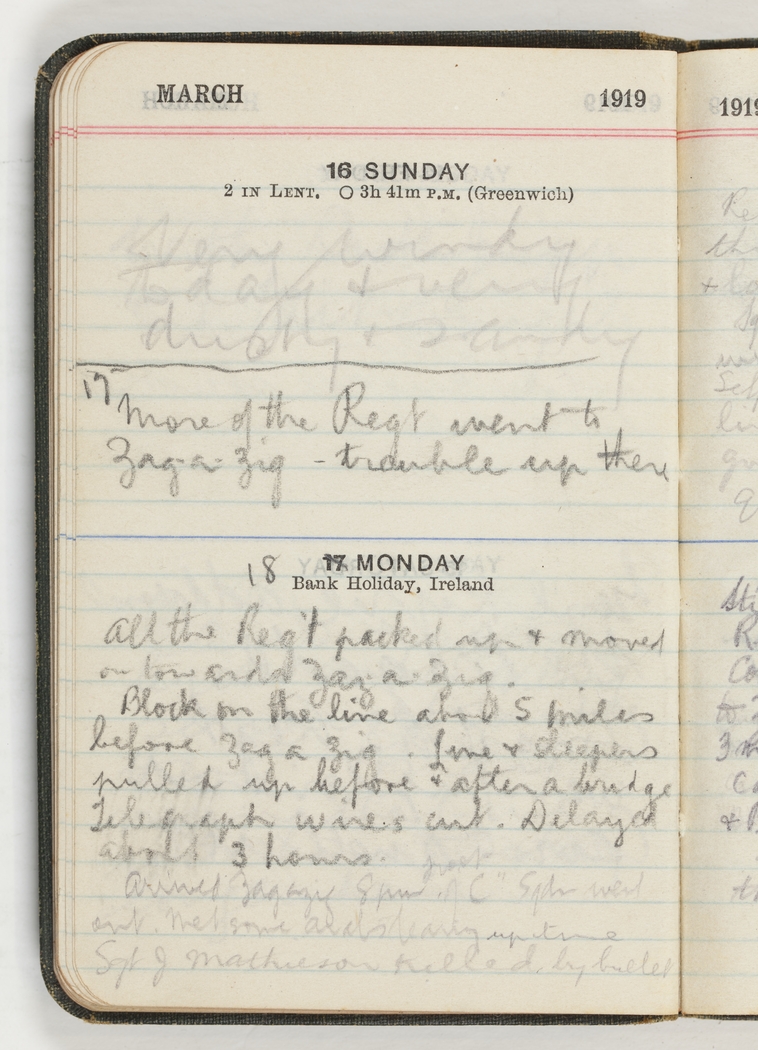 MARCH 1919
16 SUNDAY
2 IN LENT. ○ 3h 41m P.M. (Greenwich)
Very windy
today & very
dusty & sandy
17
More of the Reg't went to
Zag-a-Zig - trouble up there
18 17 MONDAY
Bank Holiday, Ireland
All the Reg't packed up & moved
on towards Zag a Zig.
Block on the line about 5 miles
before Zag a Zig. line & sleepers
pulled up before & after a bridge
Telegraph wires cut. Delayed
about 3 hours.
Arrived Zagazig 8 pm. part of "C" Sqdn went
out. Met some up line
Sgt J Mathieson killed by bullet
1919